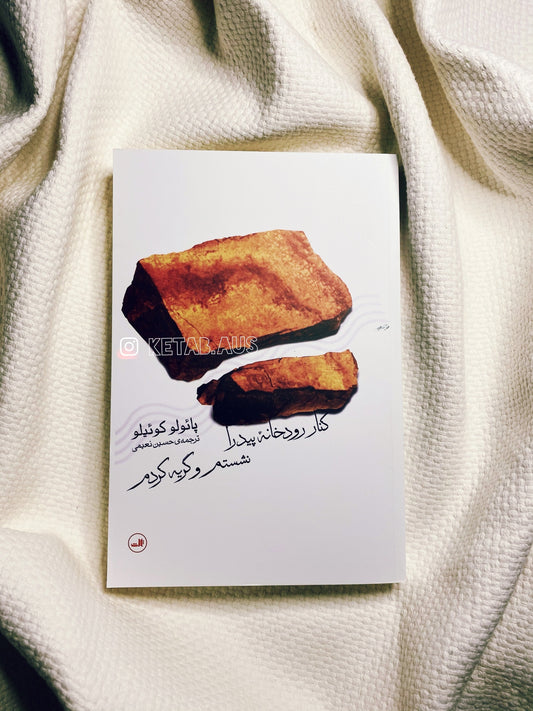 KETAB.AUS
کنار رودخانهٔ پیدرا
نشستم و گریه کردم
پائولو کوئیلو
ترجمه‌ی حسین نعیمی
ثالث